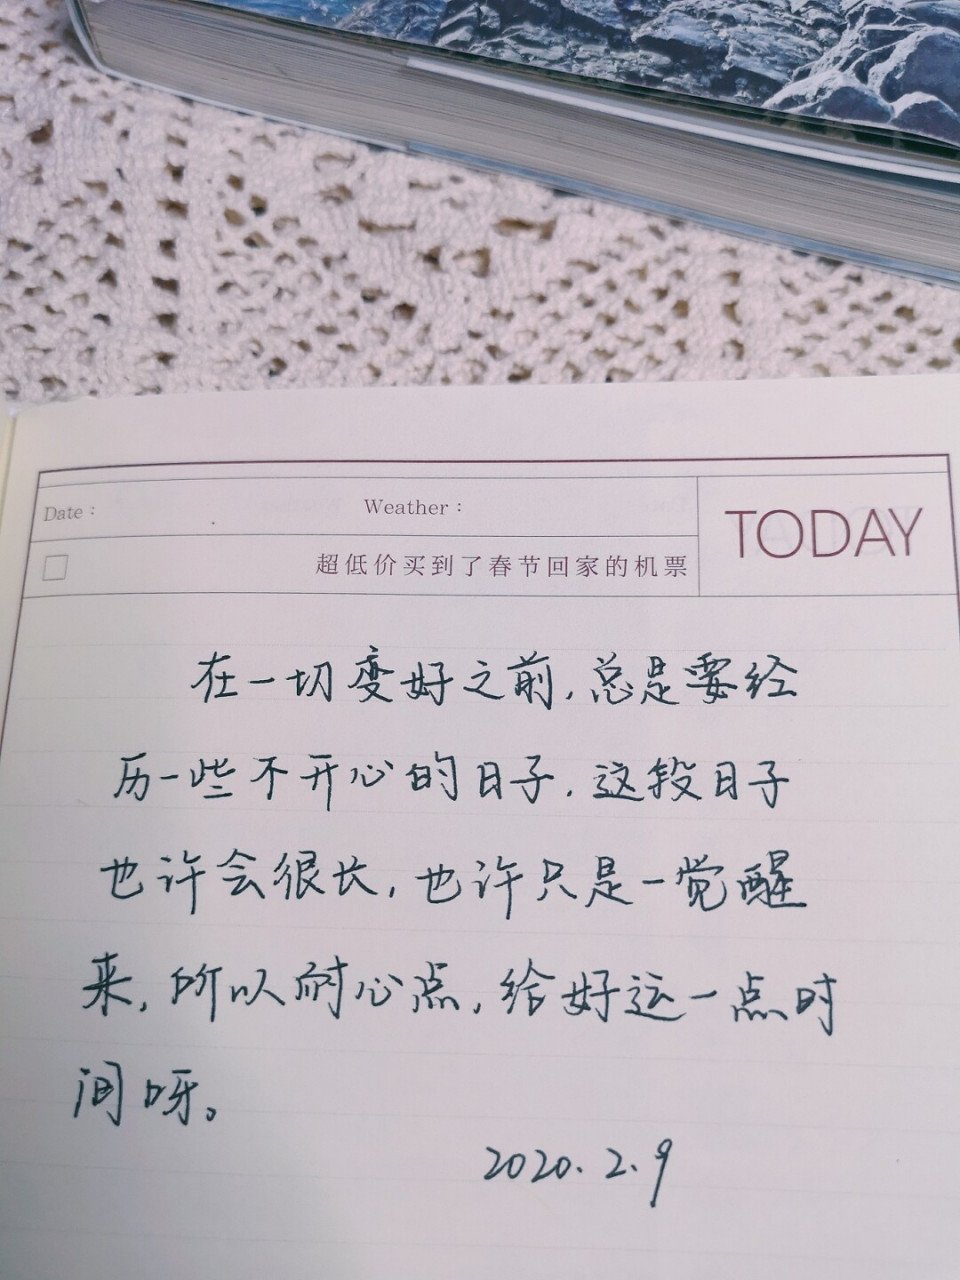 Date：
Weather：
TODAY
超低价买到了春节回家的机票
在一切变好之前，总是要经
历一些不开心的日子，这段日子
也许会很长，也许只是一觉醒
来，所以耐心点，给好运一点时
间呀。
2020.2.9